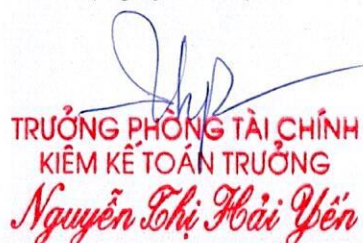 TRƯỞNG PHÒNG TÀI CHÍNH
KIÊM KẾ TOÁN TRƯỞNG
Nguyễn Thị Hải Yến